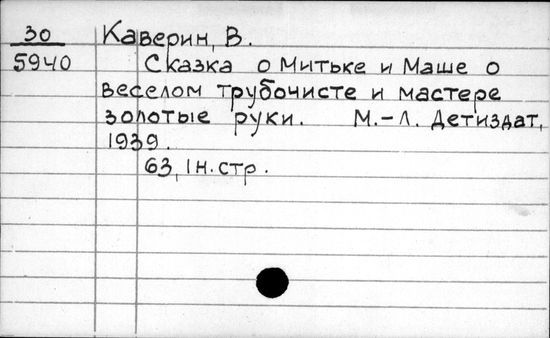 30 Каверин, В.
5940 Сказка о Митьке и Маше о
веселом трубочисте и мастере
золотые руки. М.-Л. Детиздат,
1939.
63, 1н.стр.